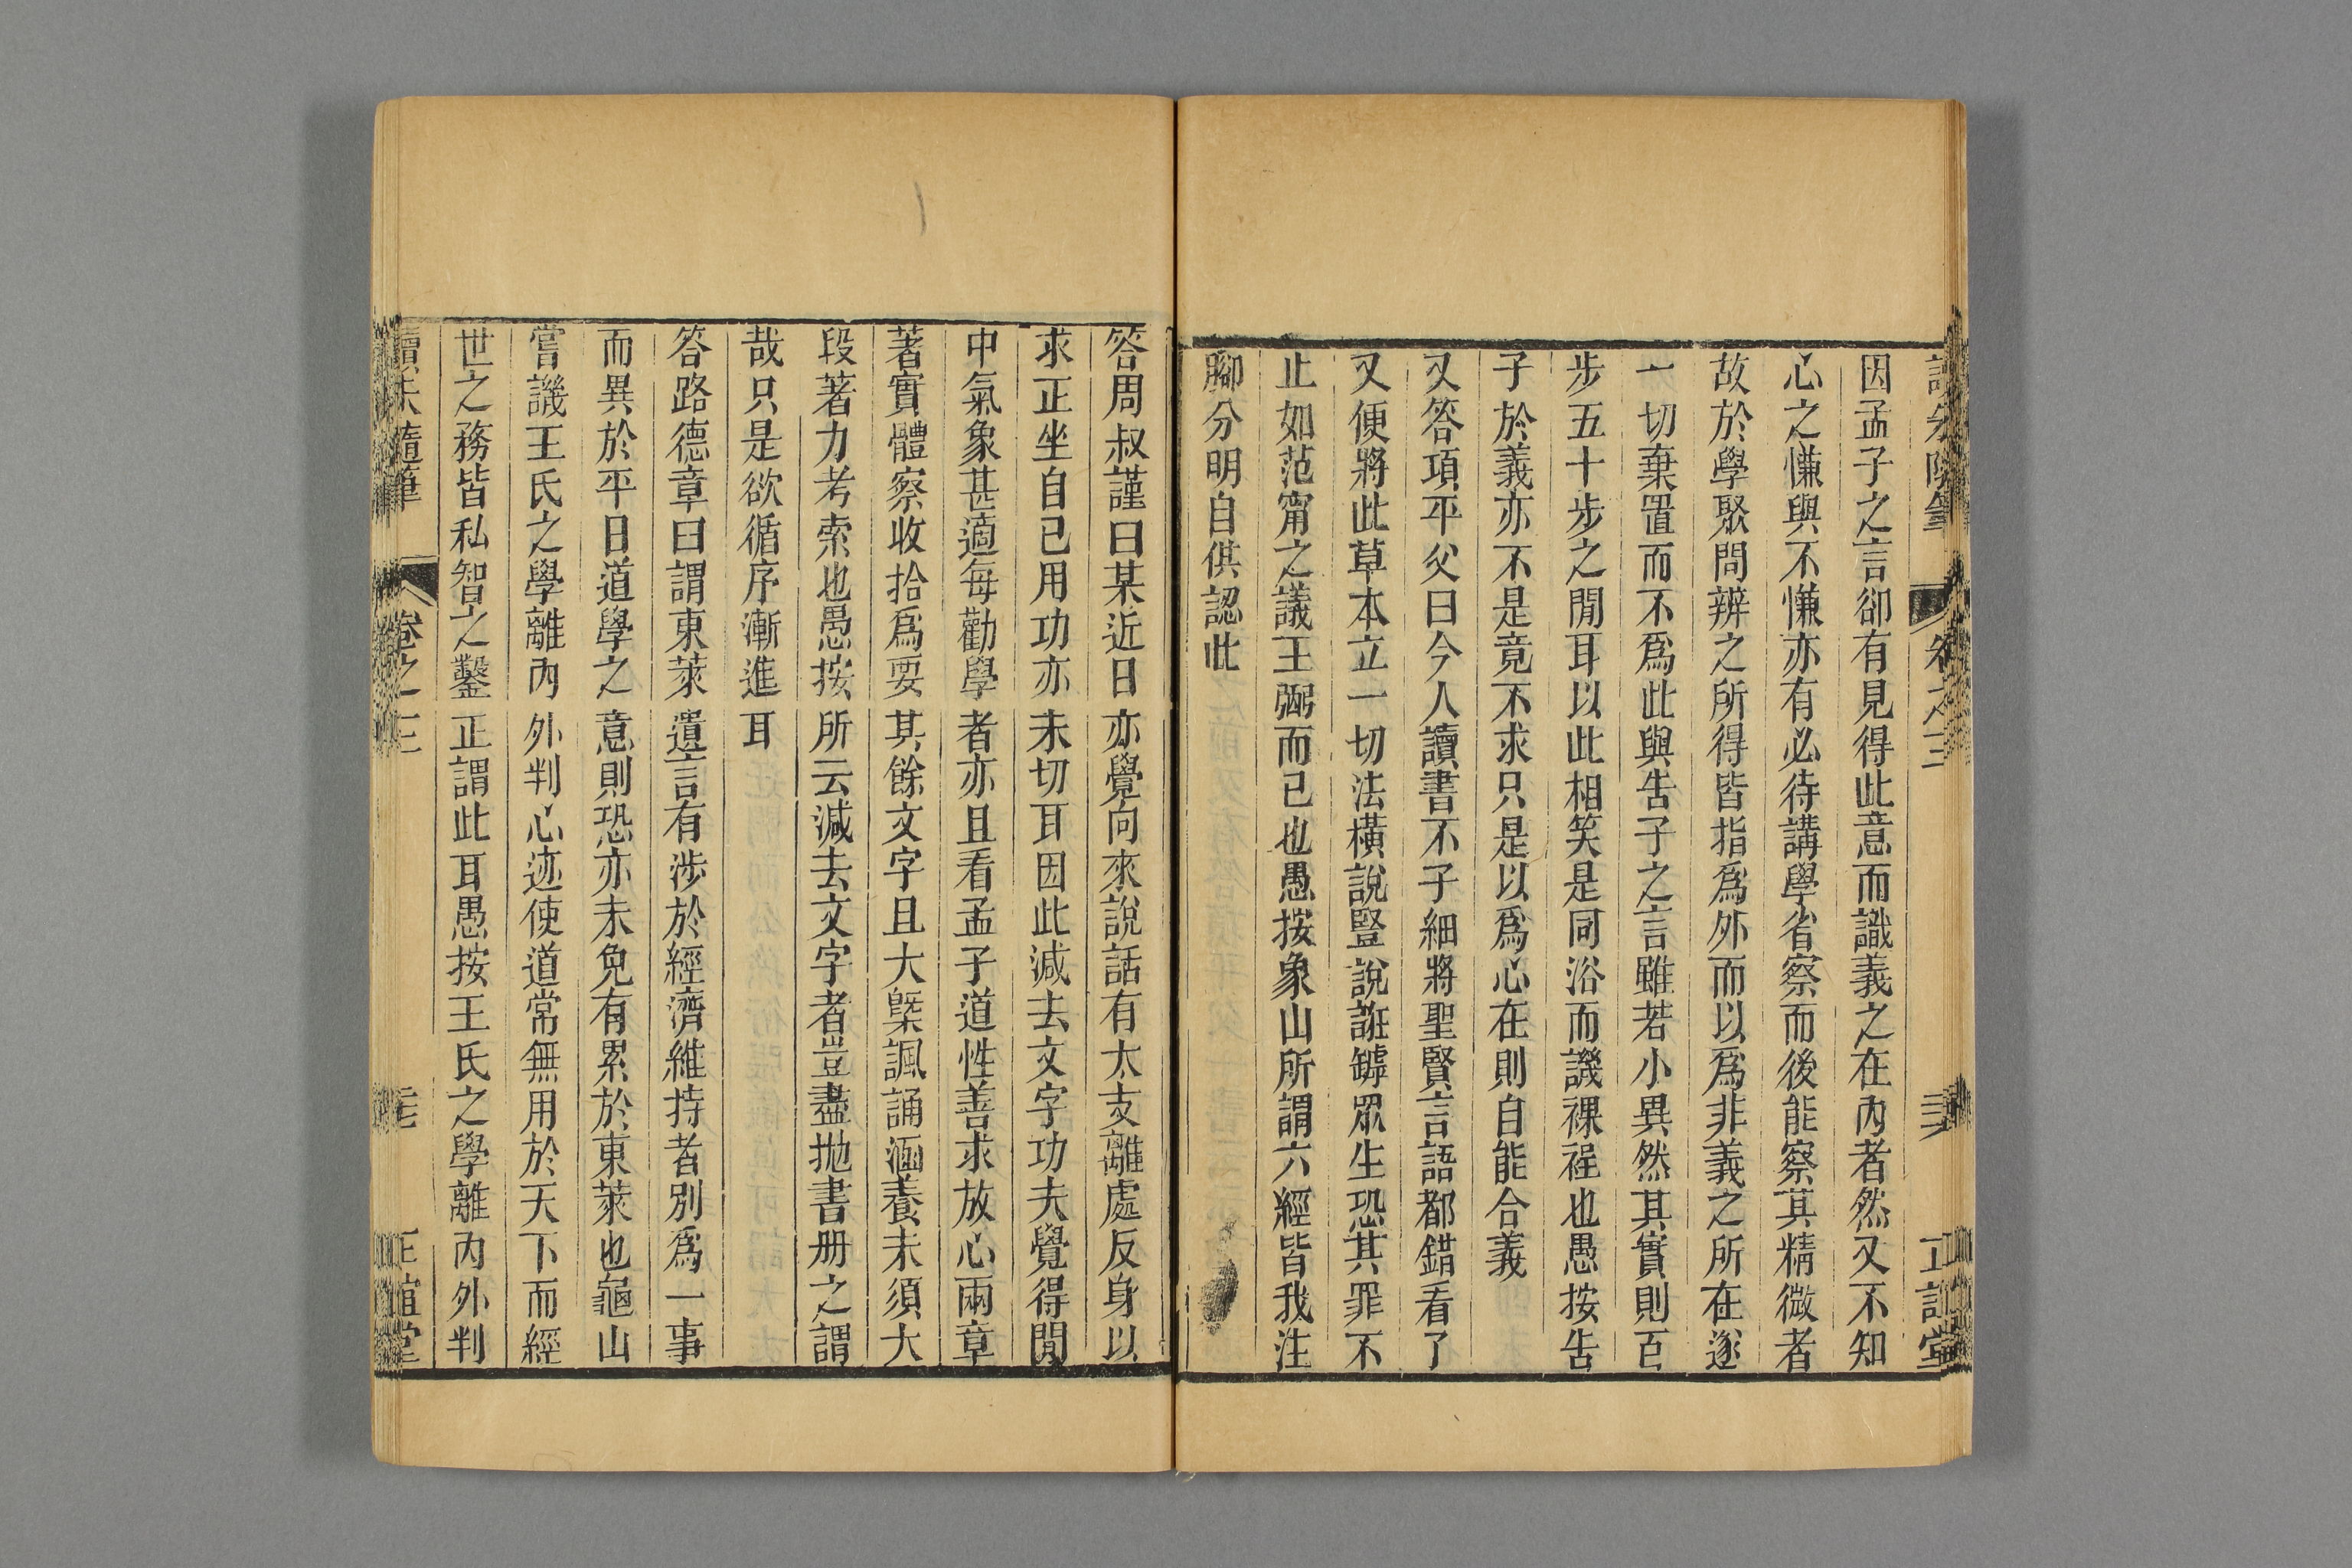 因孟子之言卻有見得此意而識義之在內者然又不知
心之慊與不慊亦有必待講學省察而後能察其精微者
故於學聚問辨之所得皆指爲外而以爲非義之所在遂
一切棄置而不爲此與告子之言雖若小異然其實則百
步五十步之閒耳以此相笑是同浴而譏裸裎也愚按告
子於義亦不是竟不求只是以爲心在則自能合義
又答項平父曰今人讀書不子細將聖賢言語都錯看了
又便將此草本立一切法橫說豎說誑罅眾生恐其罪不
止如范甯之議王弼而已也愚按象山所謂六經皆我注
腳分明自供認此
答周叔謹曰某近日亦覺向來說話有太支離處反身以
求正坐自己用功亦未切耳因此減去文字功夫覺得閒
中氣象甚適每勸學者亦且看孟子道性善求放心兩章
著實體察收拾爲要其餘文字且大槩諷誦涵養未須大
段著力考索也愚按所云減去文字者豈盡拋書册之謂
哉只是欲循序漸進耳
答路德章曰謂東萊遺言有涉於經濟維持者別爲一事
而異於平日道學之意則恐亦未免有累於東萊也龜山
嘗譏王氏之學離內外判心迹使道常無用於天下而經
世之務皆私智之鑿正謂此耳愚按王氏之學離內外判
讀朱隨筆 卷之三 正誼堂